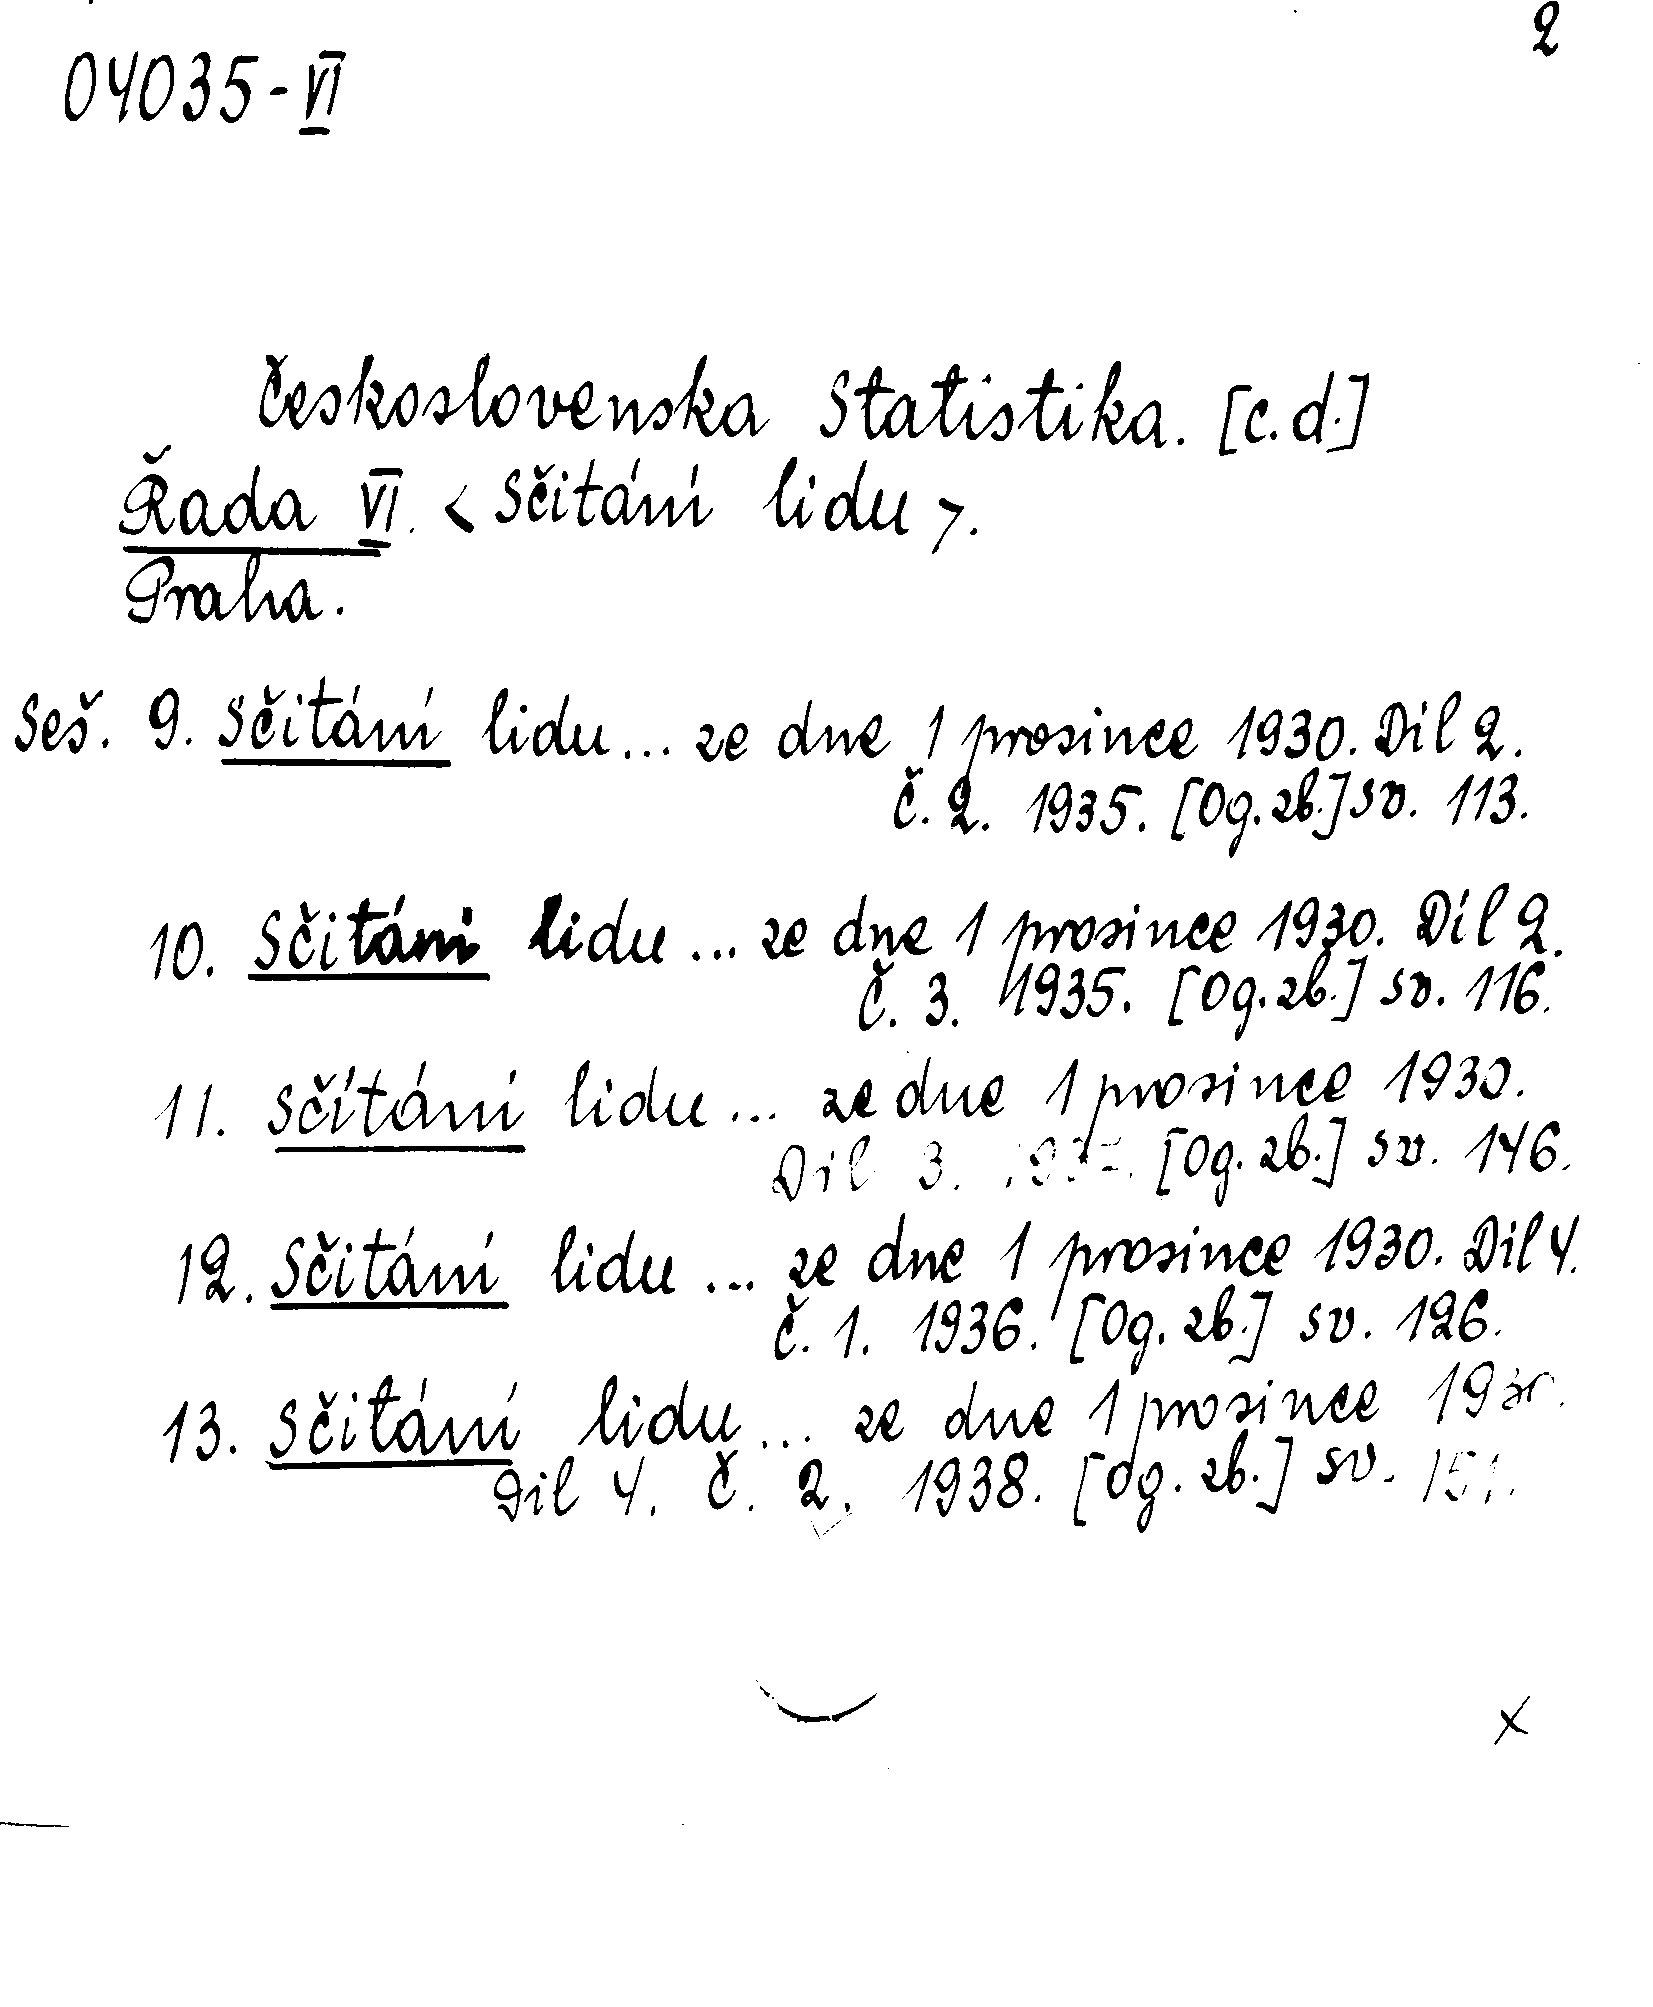 2
04035-VI
Československa Statistika. [c.d.]
Řada VI. < Sčítání lidu >.
Praha.
Seš. 9. Sčítání lidu... ze dne 1 prosince 1930. Díl 2.
č. 2. 1935. [Og. zb.] sv. 113.
10. Sčitáni lidu... ze dne 1 prosince 1930. Díl 2.
č. 3. 1935. [Og. zb.] sv. 116.
11. Sčítání lidu... ze dne 1 prosince 1930.
Díl 3. [Og. zb.] sv. 146.
12. Sčítání lidu... ze dne 1 prosince 1930. Díl 4.
č. 1. 1936. [Og. zb.] sv. 126.
13. Sčítání lidu... ze dne 1 prosince 1930.
Díl 4. č. 2. 1938. [Og. zb.] sv. 151.
x